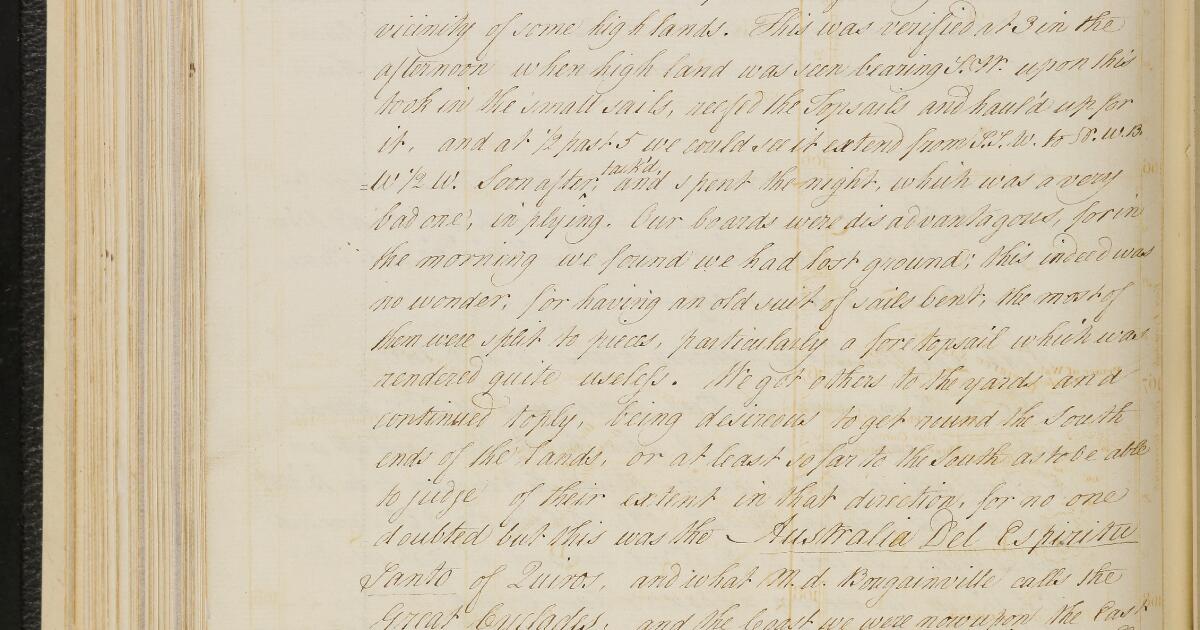 vicinity of some high lands. This was verified at 3 in the
afternoon when high land was seen bearing S.W. upon this
took in the small sails, reefed the Topsails and haul'd up for
it, and at ½ past 5 we could see it extend from S.S.W. to N.W.B.
=W ½ W. Soon after, tack'd, and spent the night, which was a very
bad one, in plying. Our boards were disadvantagous, for in
the morning we found we had lost ground; this indeed was
no wonder, for having an old suit of sails bent, the most of
them were split to pieces, particularly a fore topsail which was
rendered quite useless. We got others to the yards and
continued to ply, being desireous to get round the South
ends of the Lands, or at least so far to the South as to be able
to judge of their extent in that direction, for no one
doubted but this was the Australia Del Espiritu
Santo of Quiros, and what M. d. Bougainville calls the
Great Cyclades, and the Coast we were now upon the East